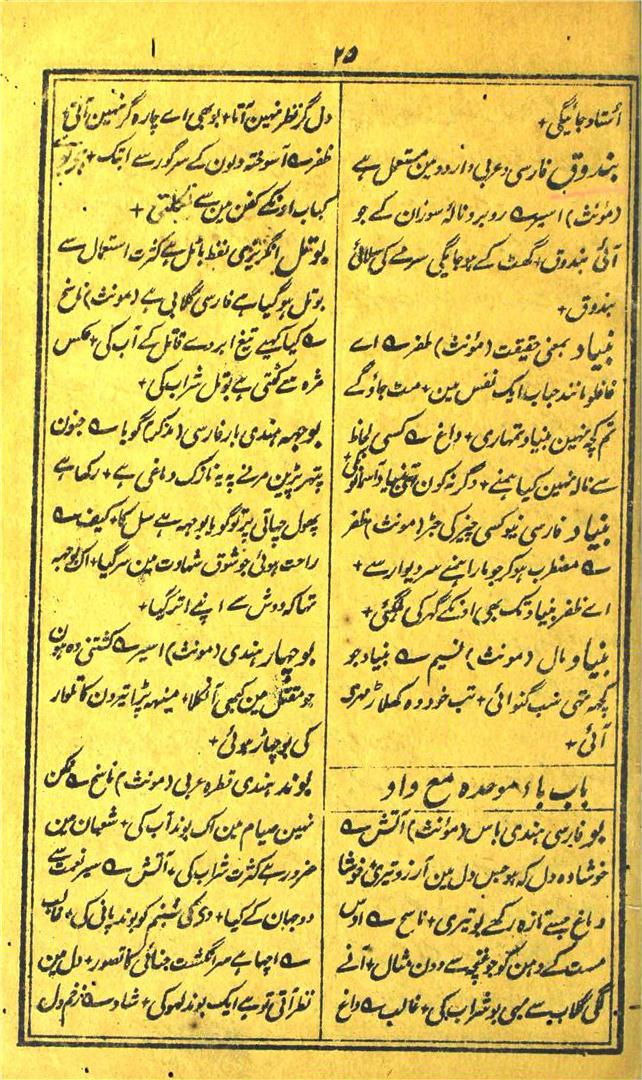 ۲۵
استاد جائیگی +
بندوق فارسی و عربی و اردو مین مستعمل ہے
(مؤنث) اسیر ؎ روبرو نالۂ سوزان کے جو
آئی بندوق + گھٹ کے ہو جائیگی سرمے کی سلائی
بندوق +
بنیاد بمعنی حقیقت (مؤنث) ظفر ؎ اے
غافلو مانند حباب ایک نفس مین + مٹ جاؤ گے
تم کچھ نہین بنیاد تمہاری + داغ ؎ کسی لحاظ
سے نالہ نہین کیا ہمنے + وگرنہ کون بنیاد آسمانونکی
بنیاد فارسی نیو کسی چیز کی جڑ (مونث) ظفر
؎ مضطرب ہوکر جو مارا ہمنے سر دیوار سے +
اے ظفر بنیاد تک بھی اونکے گھر کی ہلگئی +
بنیاد مال (مونث) نسیم ؎ بنیاد جو
کچھ تھی سب گنوائی + تب خود وہ کھلاڑ مہری
آئی +
باب باء موحدہ مع واو
بو فارسی ہندی باس (مؤنث) آتش ؎
خوشا وہ دل کہ ہو جس دل مین آرزو تیری + خوشا
دماغ جسے تازہ رکھے بو تیری + ناسخ ؎ اوس
مست کے دہن کو جو غنچہ سے دون مثال + آنے
لگی گلاب سے بھی بو شراب کی + غالب ؎ داغ
دل گر نظر نہین آتا + بو بھی اے چارہ گر نہین آتی +
ظفر ؎ آ سوختہ دلون کے سر گور سے ابتک +
کباب اونکے کفن مین سے نکلتی +
بوتل انگریزی لفظ باٹل ہے کثرت استعمال سے
بوتل ہو گیا ہے فارسی گلابی ہے (مونث) ناسخ
؎ کیا کہیے تیغ ابروے قاتل کے آب کی + عکس
مژہ سے کٹتی ہے بوتل شراب کی +
بوجھہ ہندی بار فارسی (مذکر) گویا ؎ جنون
پتھر پڑین مرنے پہ یہ نازک دماغی ہے + رکھا ہے
پھول چھاتی پر تو گویا بوجھہ ہے سل کا + کیف ؎
راحت ہوئی جو شوق شہادت مین سر گیا + اک بوجھہ
تھا کہ دوش سے اپنے اتر گیا +
بوچھار ہندی (مونث) اسیر ؎ کشتنی وہ ہون
جو مقتل مین کبھی آنکلا + مینہہ پڑا تیرون کا تلوار
کی بوچھار ہوئی +
بوند ہندی قطرہ عربی (مونث) ناسخ ؎ ممکن
نہین صیام مین اک بوند آب کی + شعبان مین
ضرور ہے کثرت شراب کی + آتش ؎ سیر نعمت سے
دو جہان کے کیا + دی گئی شبنم کو بوند پانی کی + غالب
؎ اچھا ہے سر انگشت حنائی کا تصور + دل مین
نظر آتی تو ہے ایک بوند لہو کی + شاد ؎ زخم دل